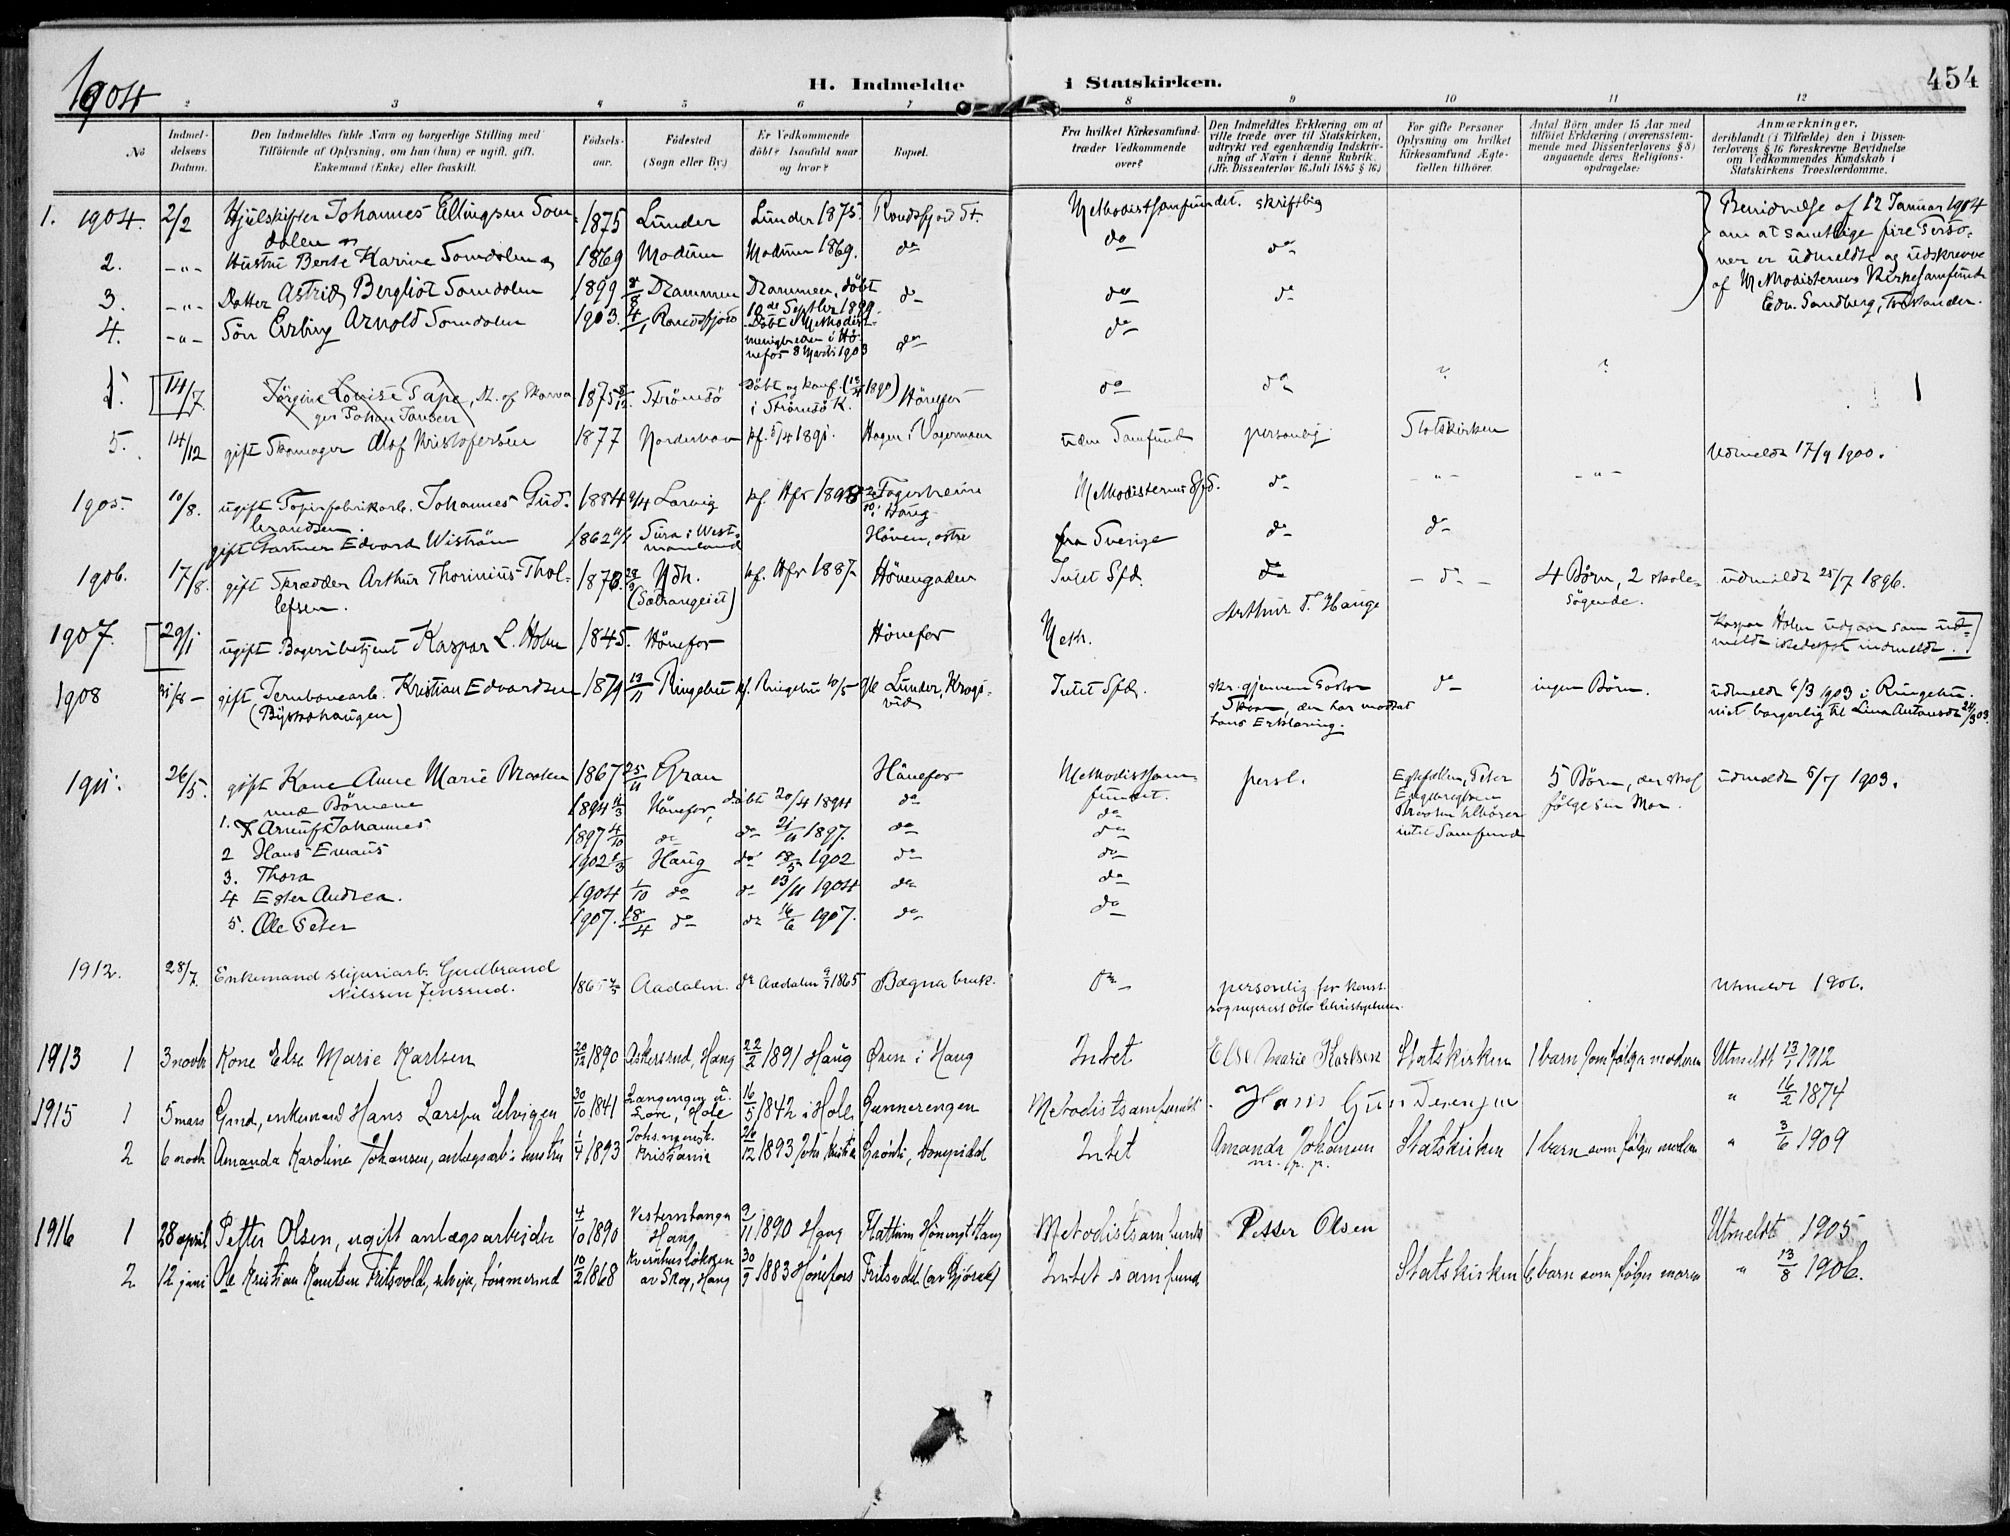 1904
H. Indmeldte i Statskirken.
454
2 3 4 5 6 7 8 9 10 11 12
No
Indmeldelsens Datum.
Den Indmeldtes fulde Navn og borgerlige Stilling med
Tilföiende af Oplysning, om han (hun) er ugift, gift,
Enkemand (Enke) eller fraskilt.
Födselsaar.
Födested
(Sogn eller By.)
Er Vedkommende
döbt? Isaafald naar
og hvor?
Bopæl.
Fra hvilket Kirkesamfund
træder Vedkommende
over?
Den Indmeldtes Erklæring om at
ville træde over til Statskirken,
udtrykt ved egenhændig Indskrivning
af Navn i denne Rubrik.
(Jfr. Dissenterlov 16. Juli 1845 § 16.)
For gifte Personer
Oplysning om hvilket
Kirkesamfund Ægtefællen
tilhörer.
Antal Börn under 15 Aar med
tilföiet Erklæring (overensstemmende
med Dissenterlovens § 8)
angaaende deres Religionsopdragelse:
Anmærkninger,
deriblandt (i Tilfælde) den i Dissenterlovens
§ 16 foreskrevne Bevidnelse
om Vedkommendes Kundskab i
Statskirkens Troeslærdomme.
1. 1904. 2/2 Hjulskifter Johannes Ellingsen Somdalen 1875 Lunder Lunder 1875. Randsfjord St. Methodistsamfundet. skriftlig
Bevidnelse af 12 Januar 1904
om at samtlige fire Personer
er udmeldte og udskrevne
af Methodisternes Kirkesamfund
Edv. Sandberg, Forstander.
2. -"- Hustru Berte Karine Somdalen 1869 Modum Modum 1869. do do do
3. -"- Datter Astrid Bergliot Somdalen 1899 Drammen Drammen, döbt
10de Septbr 1899. do do do
4. -"- Sön Erling Arnold Somdalen 1903. 4/1 Randsfjord Döbt i Methodistmenigheden
i Hönefos 8 Marts 1903 do do
5. 14/7. Jörgine Lovise Tape, 1875 Strömsö Döbt og konf. 1890
i Strömsö K. Hönefos do do
Johan Jansen
5. 14/12 gift Skomager Olaf Kristofersen 1877 Norderhov kf. 5/4 1891. Hagen i Vagermoen uden Samfund personlig Statskirken Udmeldt 17/9 1900.
1905. 10/8. ugift Papirfabrikarb. Johannes Gudbrandsen. 1884 9/4 Larvig kf. Hfs Fagerheim
i Haug Methodisternes Sfd. do -"- -"-
gift Gartner Edvard Wiström 1862 Sura i Westmanland Höven, östre fra Sverige do do
1906. 17/8. gift Skrædder Arthur Thorinius Thollefsen. Ndh. kf. Hfs 1887. Hövengaden Intet Sfd. do - do - 4 Börn, 2 skolesögende. udmeldt 25/7 1896.
Arthur T. Hauge
1907. 29/1 ugift Bageribetjent Kaspar L. Holm 1845. Hönefos Hönefos Meth.
Kaspar Holm udgaar som udmeldt
istedetfor indmeldt.
1908 31/8 - gift Jernbanearb. Kristian Edvardsen 1879 13/11 Ringebu kf. Ringebu 10/5 96 Lunder, Krogsvid Intet Sfd.
skr. gjennem Pastor
Skaar, der har modtat
hans Erklæring.
do ingen Börn. udmeldt 6/3 1903 i Ringebu.
viet borgerlig til Lina Antonsdt 24/3 03.
1911. 26/5. gift Kone Anne Marie Braaten 1867 25/11 Gran Hönefos Methodistsamfundet. persl.
Egtefællen, Peter
Engebretsen
Braaten tilhörer
intet Samfund
5 Börn, der skal
fölge sin Mor.
udmeldt 5/7 1903.
med Börnene
1. Arnulf Johannes 1894 Hönefos, döbt 20/4 1894 do do
2 Hans Emaus 1897 4/10 do do 21/11 1897. do do
3. Thora 1902 Haug do 18/5 1902 do do
4 Ester Andrea. 1904 1/10 do do 13/11 1904 do do
5. Ole Peter 1907. 18/4 do do 16/6 1907. do do
1912. 28/7. Enkemand sliperiarb. Gudbrand
Nilssen Jensrud. 1865 Aadalen. do Aadalen 9/7 1865 Bægna bruk. do
personlig for konst.
sogneprest Otto Christophersen
Utmeldt 1906.
1913 1 3 novbr Kone Else Marie Karlsen 20/12 1890 Askersrud, Haug 22/2 1891 Haug Ören i Haug Intet Else Marie Karlsen Statskirken 1 barn som følger moderen Utmeldt 13/1 1912
1915 1 5 mars Gmd, enkemand Hans Larssen Elvigen 30/10 1841 Langengen u.
Løre, Hole 16/5 1842 i Hole Gunnerengen Metodistsamfundet. Hans Gunderengen " 16/2 1874
2 6 novbr Amanda Karoline Johansen, anlægsarb.s hustru 1/4 1893 Johs.menigh.
Kristiania 26/12 1893 Joh. Kristia Grønli, Intet Amanda Johansen
m. p. p. Statskirken 1 barn som følger moderen " 3/6 1909
1916 1 28 april Petter Olsen, ugift anlægsarbeider 4/10 1890 Vesterntangen
Haug 9/11 1890 Haug Flattum Hönengt Haug Metodistsamfundet Petter Olsen Utmeldt 1905
2 12 juni Ole Kristian Knutsen Fritsvold, selveier, tømmermd 10/2 1868 Kvernhusløkken
av Skog, Haug 30/9 1883 Hönefoss Fritsvold (av Gjörud) Intet samfund Statskirken 6 barn som følger moren " 13/8 1906.